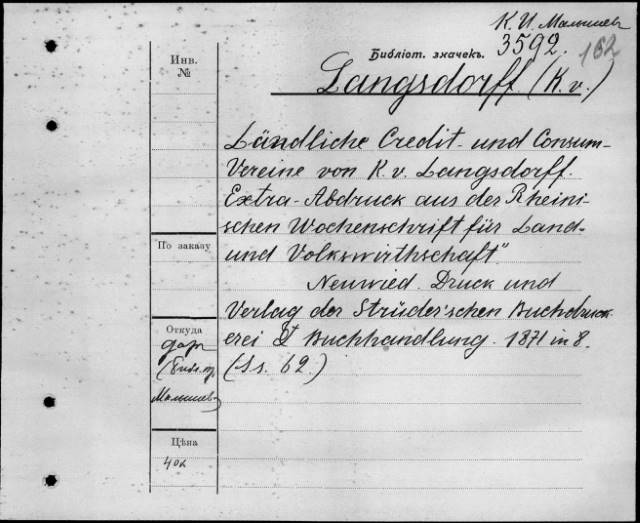 К. И. Малышев
3592. 162
Библіот. значекъ.
Langsdorff (K. v.)
Инв.
№
Ländliche Credit- und Consum-
Vereine von K. v. Langsdorff.
Extra-Abdruck aus der Rheini-
schen Wochenschrift für Land-
und Volkswirthschaft."
По заказу
Neuwied. Druck und
Verlag der Strüder'schen Buchdruck-
Откуда
erei & Buchhandlung. 1871 in 8.
даръ
(Ss. 62.)
Малышев
Цѣна
40к